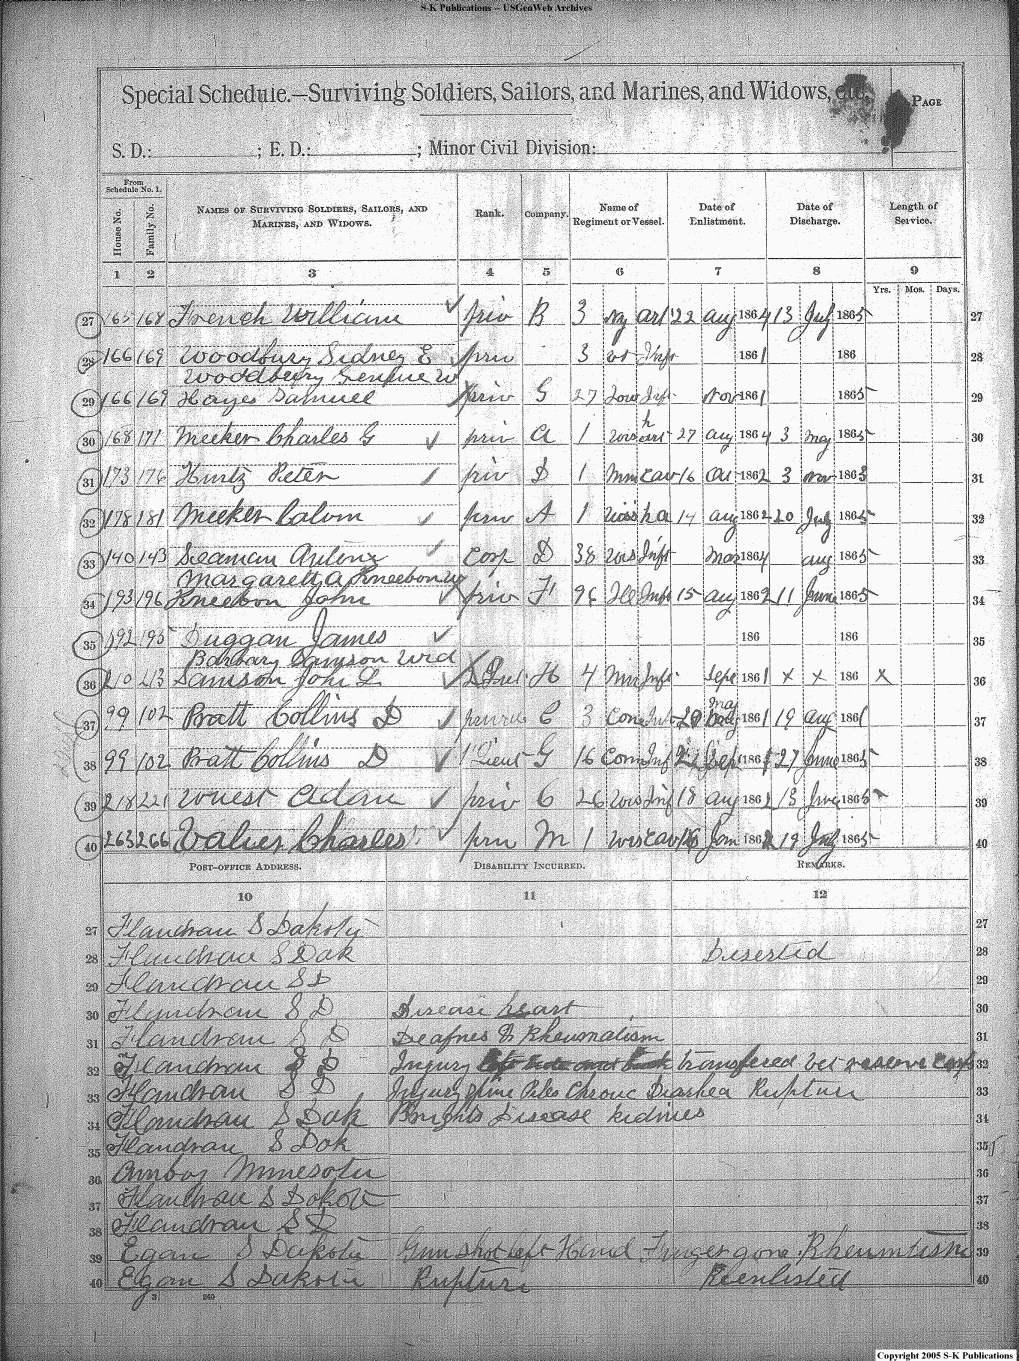 S-K Publications -- USGenWeb Archives
Special Schedule.—Surviving Soldiers, Sailors, and Marines, and Widows, etc.
PAGE
S. D.: ; E. D.: ; Minor Civil Division:
From Schedule No. 1.
House No. Family No. NAMES OF SURVIVING SOLDIERS, SAILORS, AND MARINES, AND WIDOWS. Rank. Company. Name of Regiment or Vessel. Date of Enlistment. Date of Discharge. Length of Service.
1 2 3 4 5 6 7 8 9
Yrs. Mos. Days.
27 165 168 French William priv B 3 ny art 22 aug 1864 13 Jul 1865 27
28 166 169 Woodbury Sidney E priv 3 vt Inft 1861 186 28
Woodbury W
29 166 169 Hayes Samuel priv G 27 Iowa Inft Nov 1861 1865 29
30 168 171 Meeker Charles G priv A 1 wis h art 27 aug 1864 3 may 1865 30
31 173 176 Kurtz Peter priv D 1 Minn cav 16 Oct 1862 3 nov 1863 31
32 178 181 Meeker Calvin priv A 1 wis h a 14 aug 1862 20 July 1865 32
33 140 143 Seaman Corp D 38 wis Inft Mar 1864 aug 1865 33
Margaret A Kneebon W
34 193 196 Kneebon John priv F 96 Ill Inft 15 aug 1862 11 June 1865 34
35 192 195 Duggan James 186 186 35
Barbary Samson Wid
36 210 213 Samson John L H 4 Minn Inft Sept 1861 x x 186 x 36
37 99 102 Pratt Collins D C 3 Conn Inft May 1861 19 aug 1861 37
38 99 102 Pratt Collins D 1 Lieut G 16 Conn Inf Sep 186 27 June 1865 38
39 218 221 Wuest Adam priv C 26 Wis Inf 18 aug 1862 13 June 1865 39
40 263 266 Charles priv M 1 wis cav Jan 186 19 July 1865 40
POST-OFFICE ADDRESS. DISABILITY INCURRED. REMARKS.
10 11 12
27 Flandrau S Dakota 27
28 Flandrau S Dak Diserted 28
29 Flandrau S D 29
30 Flandrau S D Disease heart 30
31 Flandrau S D Deafnes & Rheumatism 31
32 Flandrau S D Injury transfered vet reserve Corps 32
33 Flandrau S D Injury Spine Piles Chronic Diarhea Rupture 33
34 Flandrau S Dak Brights Disease kidnies 34
35 Flandrau S Dak 35
36 Amboy Minnesota 36
37 Flandrau S Dakota 37
38 Flandrau S D 38
39 Egan S Dakota Gun shot left Hand Finger gone Rheumtism 39
40 Egan S Dakota Rupture Reenlisted 40
3 240
Copyright 2005 S-K Publications